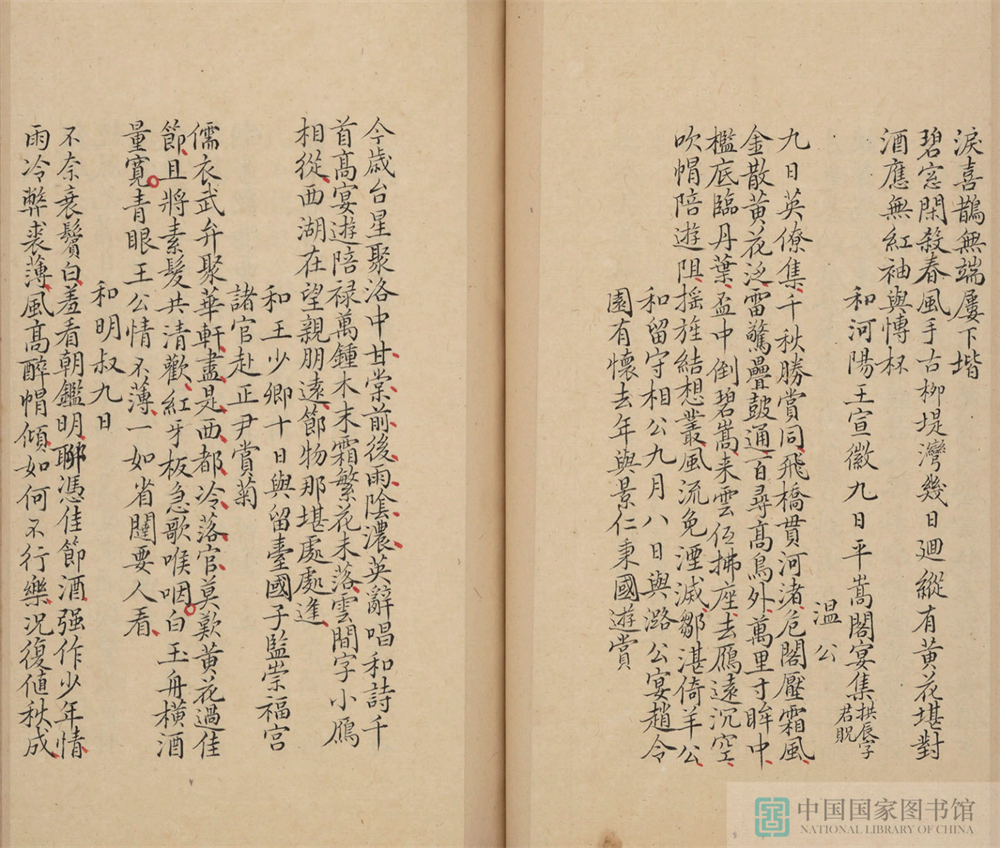 淚喜鵲無端屢下堦
碧窓閑殺春風手古柳堤灣幾日廻縱有黄花堪對
酒應無紅袖與慱杯
和河陽王宣徽九日平嵩閣宴集拱辰字君貺
温公
九日英僚集千秋勝賞同飛橋貫河渚危閣壓霜風
金散黄花泛雷驚疊皷通百尋髙鳥外萬里寸眸中
檻底臨丹葉盃中倒碧嵩来雲低拂座去鴈遠沉空
吹帽陪遊阻揺旌結想叢風流免湮滅鄒湛倚羊公
和留守相公九月八日與潞公宴趙令
園有懷去年與景仁秉國遊賞
今歳台星聚洛中甘棠前後雨隂濃英辭唱和詩千
首髙宴遊陪禄萬鍾木末霜繁花未落雲間字小鴈
相從西湖在望親朋遠節物那堪處處逢
和王少卿十日與留臺國子監崇福宮
諸官赴正尹賞菊
儒衣武弁聚華軒盡是西都冷落官莫歎黄花過佳
節且將素髪共清歡紅牙板急歌喉咽白玉舟横酒
量寛青眼王公情不薄一如省闥要人看
和明叔九日
不奈衰鬢白羞看朝鑑明聊憑佳節酒强作少年情
雨冷弊裘薄風髙醉帽傾如何不行樂况復値秋成
中国国家图书馆
NATIONAL LIBRARY OF CHINA